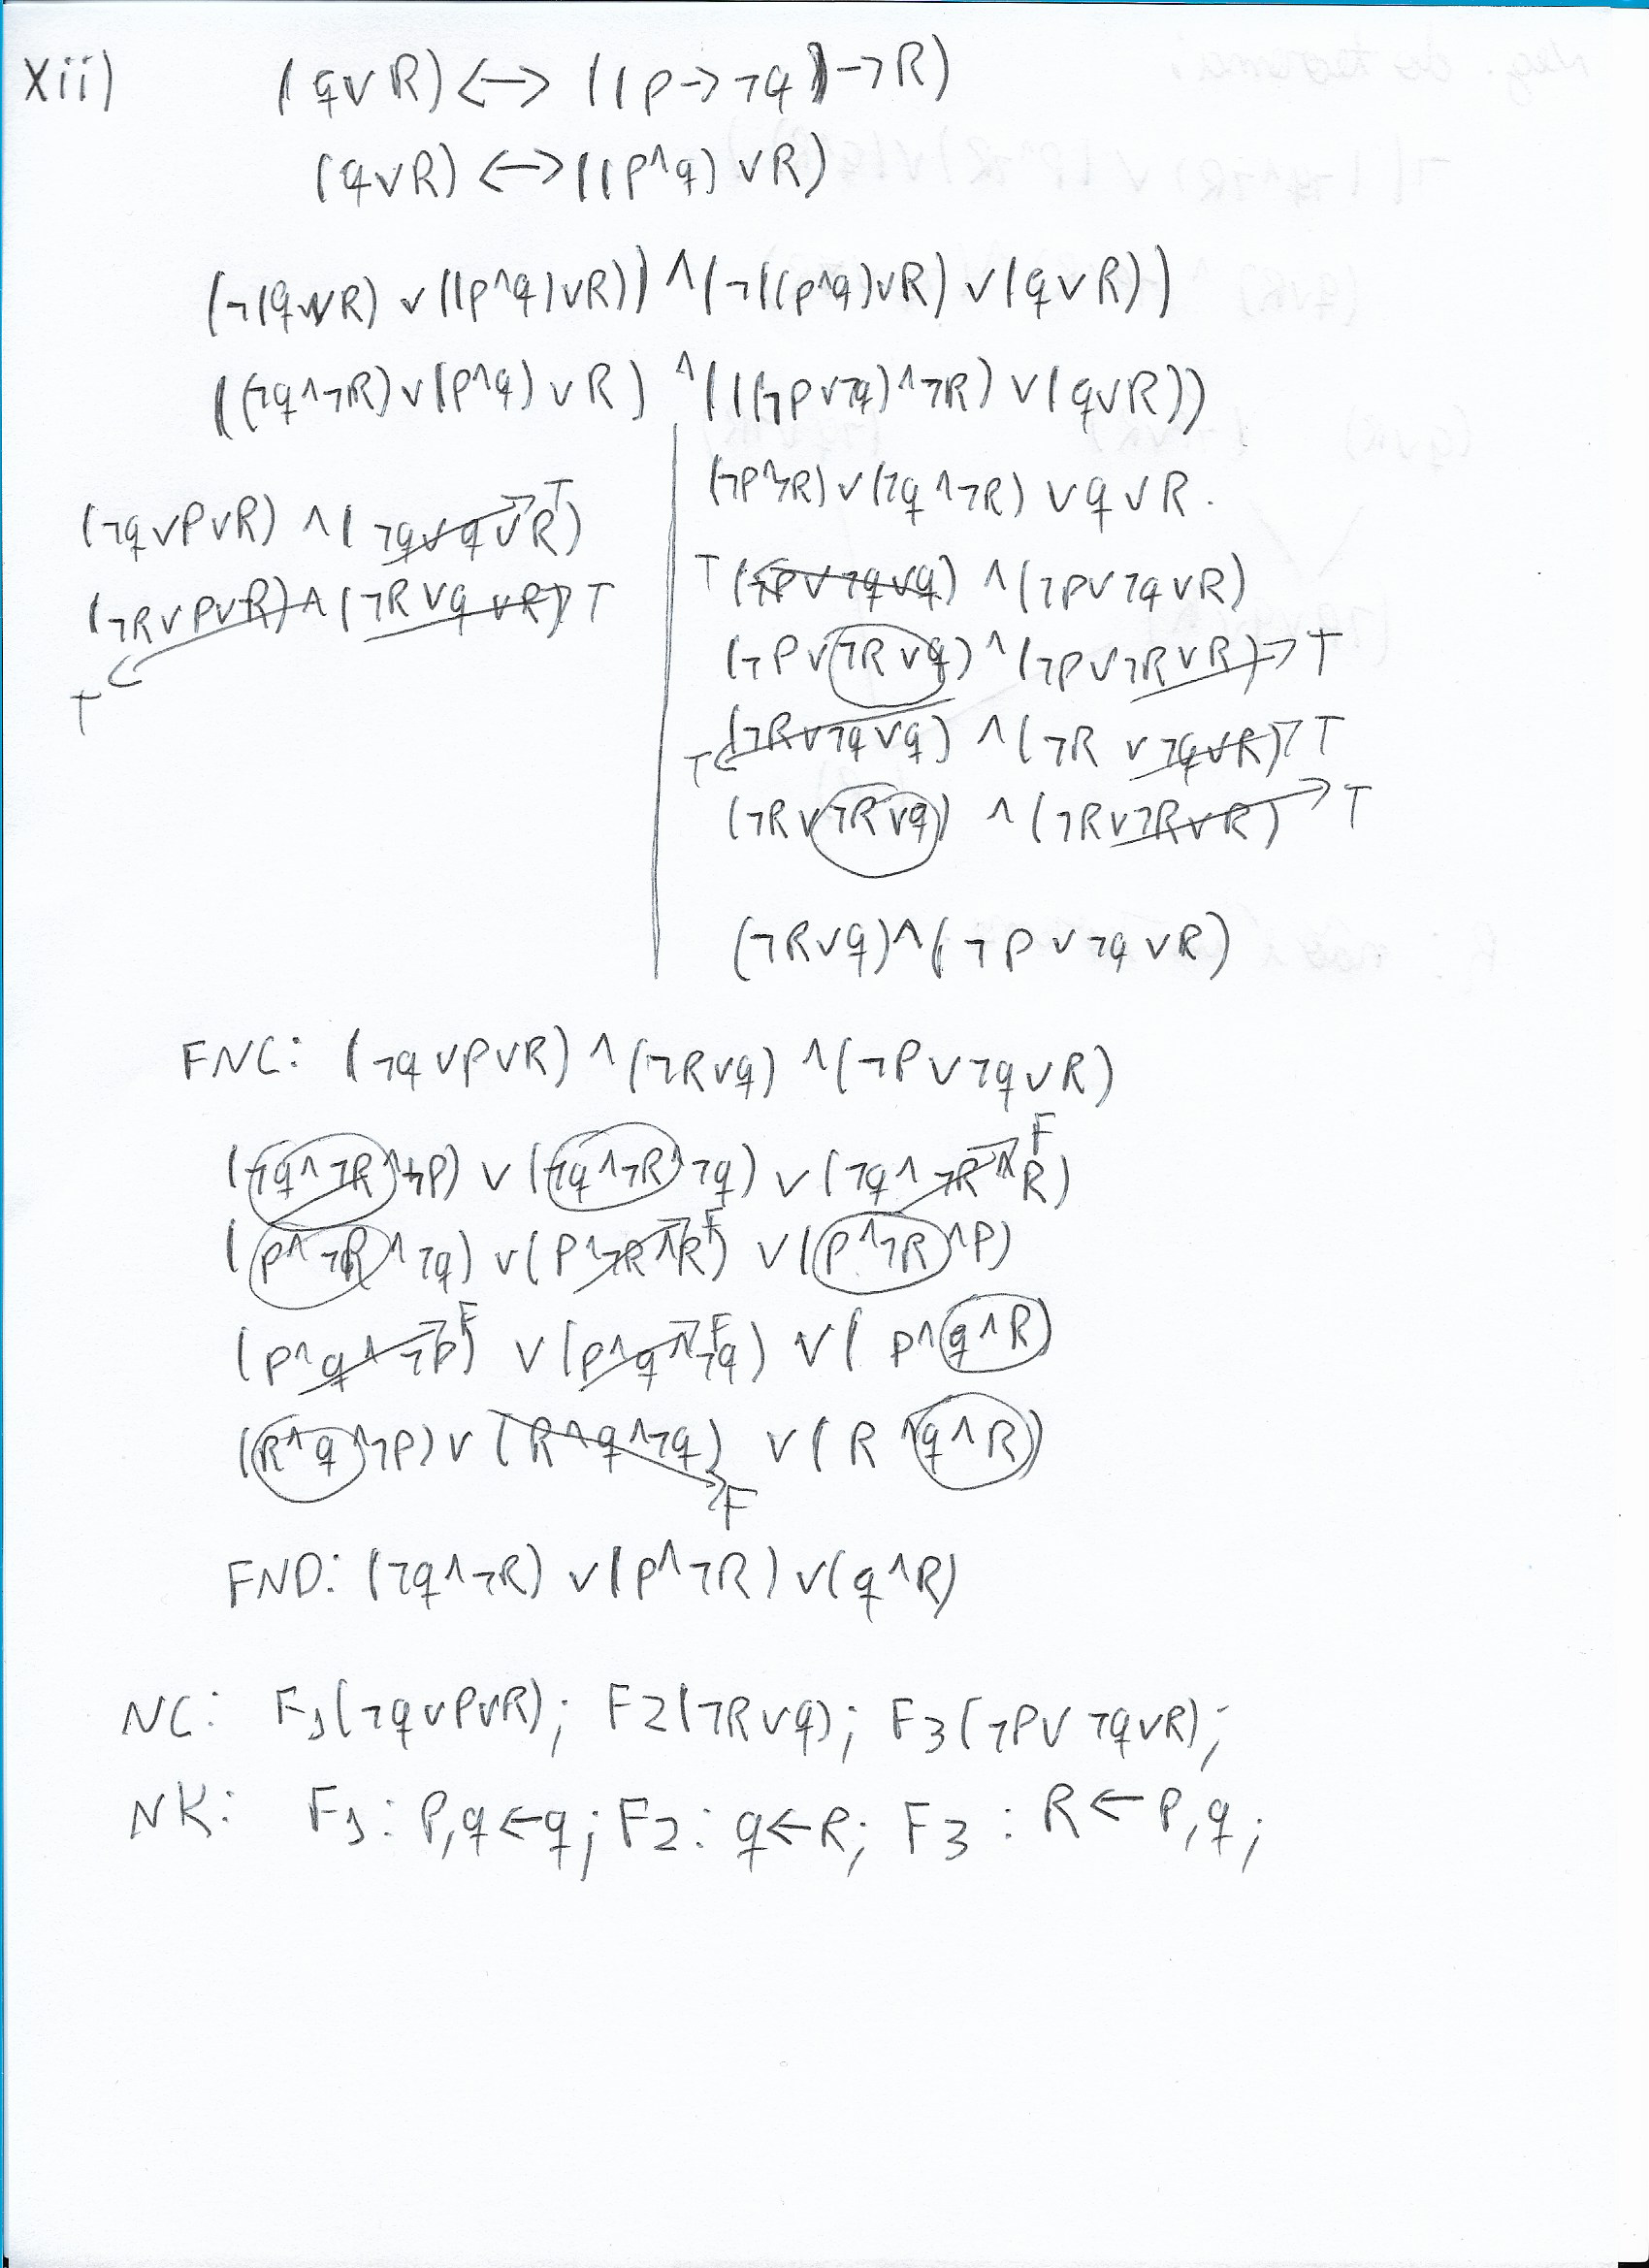 Xii) (q∨R)<->((p->¬q)->R)
(q∨R)<->((p^q)∨R)
(¬(q∨R)∨((p^q)∨R))^(¬((p^q)∨R)∨(q∨R))
((¬q^¬R)∨(p^q)∨R)^(((¬p∨¬q)^¬R)∨(q∨R))
(¬q∨p∨R)^(¬q∨q∨R) T
(¬R∨p∨R)^(¬R∨q∨R) T
T
(¬p^¬R)∨(¬q^¬R)∨q∨R.
T (¬p∨¬q∨q)^(¬p∨¬q∨R)
(¬p∨¬R∨q)^(¬p∨¬R∨R)->T
T (¬R∨¬q∨q)^(¬R∨¬q∨R) T
(¬R∨¬R∨q)^(¬R∨¬R∨R) T
(¬R∨q)^(¬p∨¬q∨R)
FNC: (¬q∨p∨R)^(¬R∨q)^(¬p∨¬q∨R)
(¬q^¬R^¬p)∨(¬q^¬R^¬q)∨(¬q^¬R^R) F
(p^¬R^¬q)∨(p^¬R^R) F ∨(p^¬R^p)
(p^q^¬p) F ∨(p^q^¬q) F ∨(p^q^R)
(R^q^¬p)∨(R^q^¬q)∨(R^q^R)
F
FND: (¬q^¬R)∨(p^¬R)∨(q^R)
NC: F1(¬q∨p∨R); F2(¬R∨q); F3(¬p∨¬q∨R);
NK: F1: p,q<-q; F2: q<-R; F3: R<-p,q;